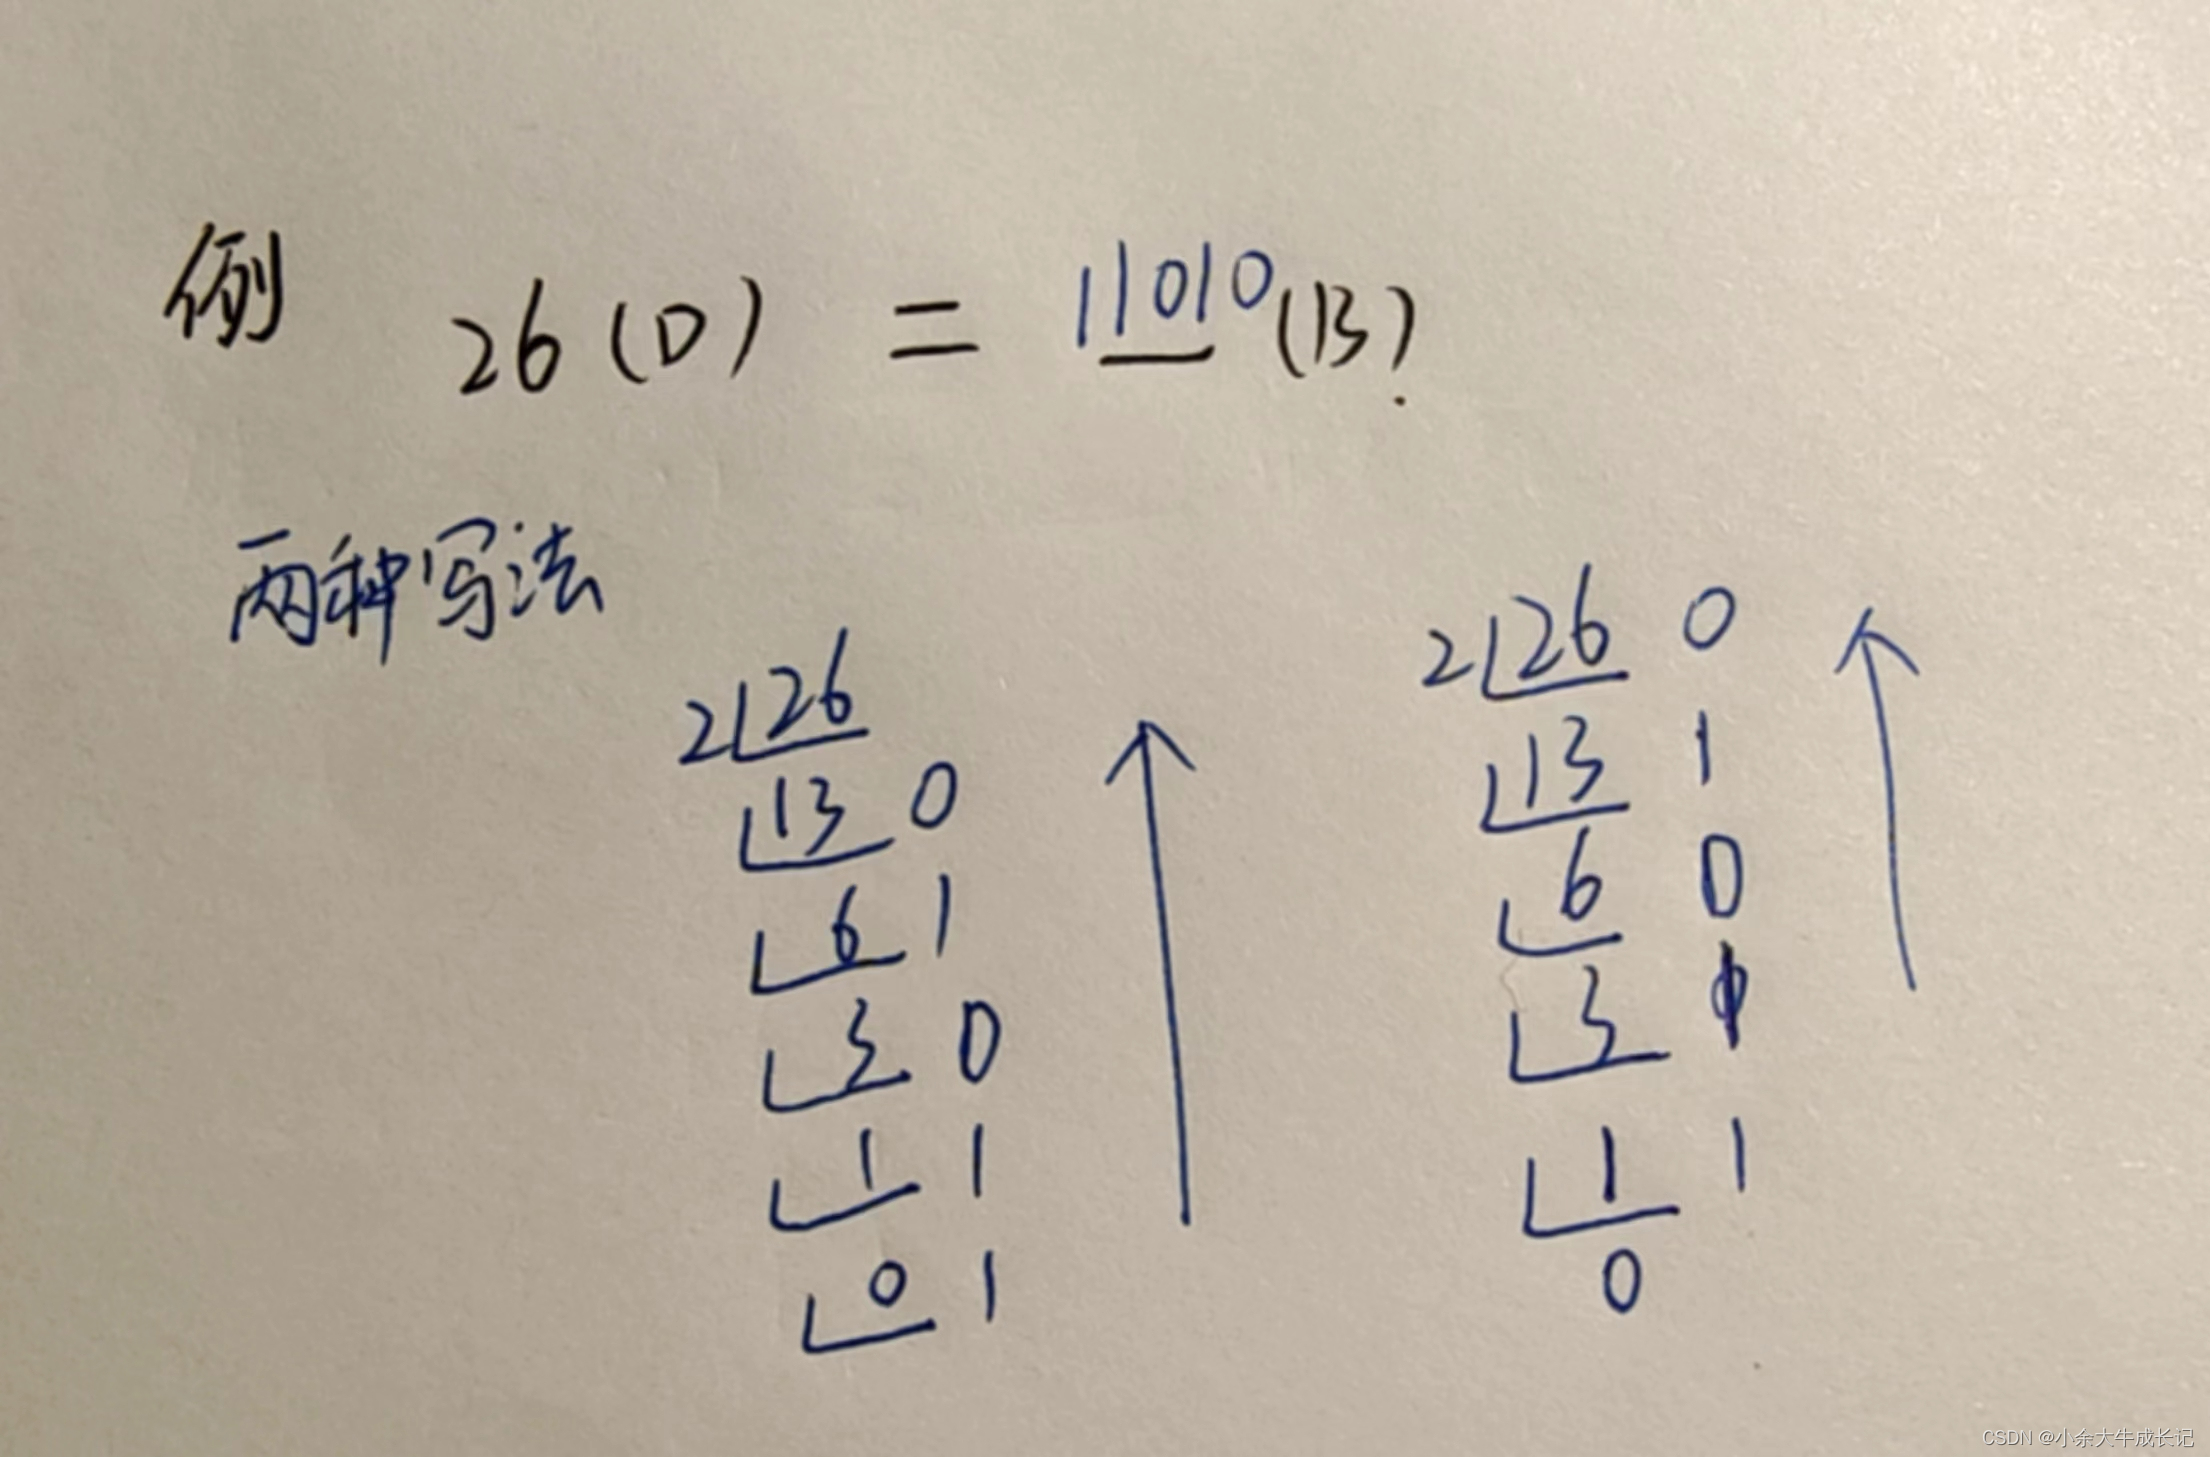 例 26(D) = 11010(B)
两种写法
2 26
13 0
6 1
3 0
1 1
0 1
2 26 0
13 1
6 0
3 1
1 1
0
CSDN @小余大牛成长记